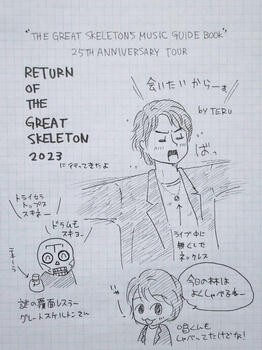 "THE GREAT SKELETON'S MUSIC GUIDE BOOK"
25TH ANNIVERSARY TOUR
RETURN
OF
THE
GREAT
SKELETON
2023
に行ってきたよ
会いたいからーぁ
by TERU
ばっ
トライセラ
トップスは
スキネー
ドラムモ
スキヨー
ライブ中に
無くしたネ
ックレス
謎の覆面レスラー
グレートスケルトンさん
今日の林は
よくしゃべるねー
唱くんも
しゃべってたけどな!